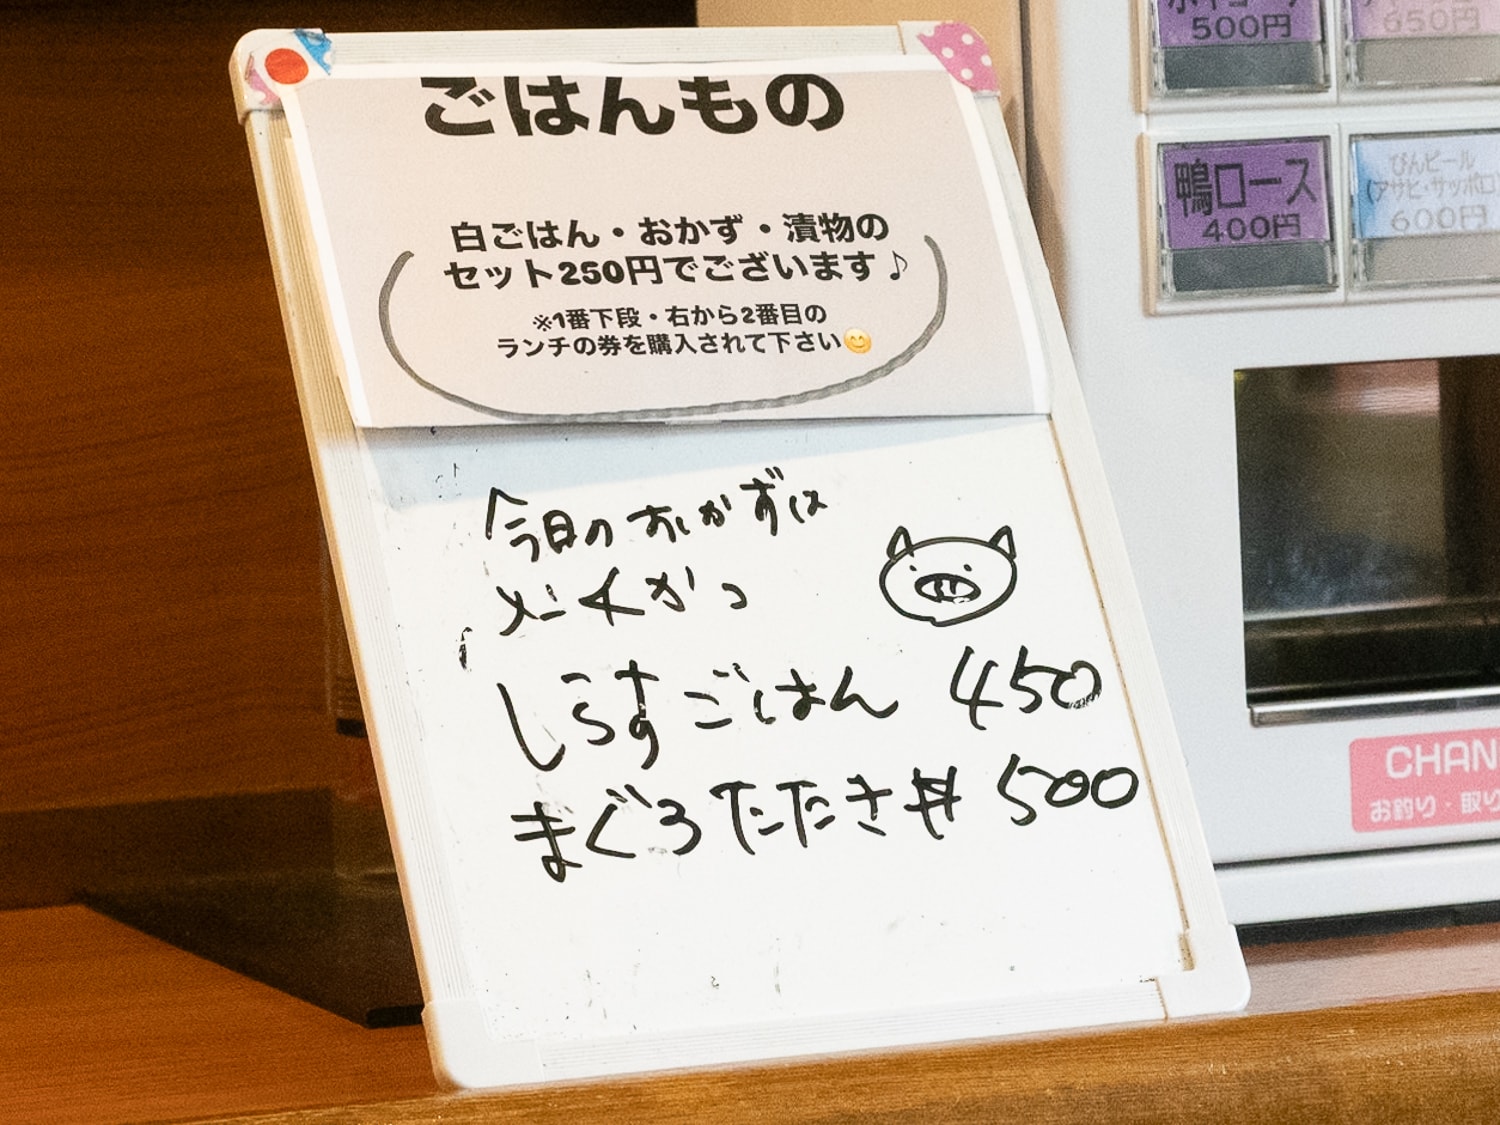 ごはんもの
白ごはん・おかず・漬物の
セット250円でございます♪
※1番下段・右から2番目の
ランチの券を購入されて下さい😊
今日のおかずは
メンチカツ
しらすごはん 450
まぐろたたき丼 500
500円
650円
鴨ロース
400円
びんビール
(アサヒ・サッポロ
600円
CHAN
お釣り・取り